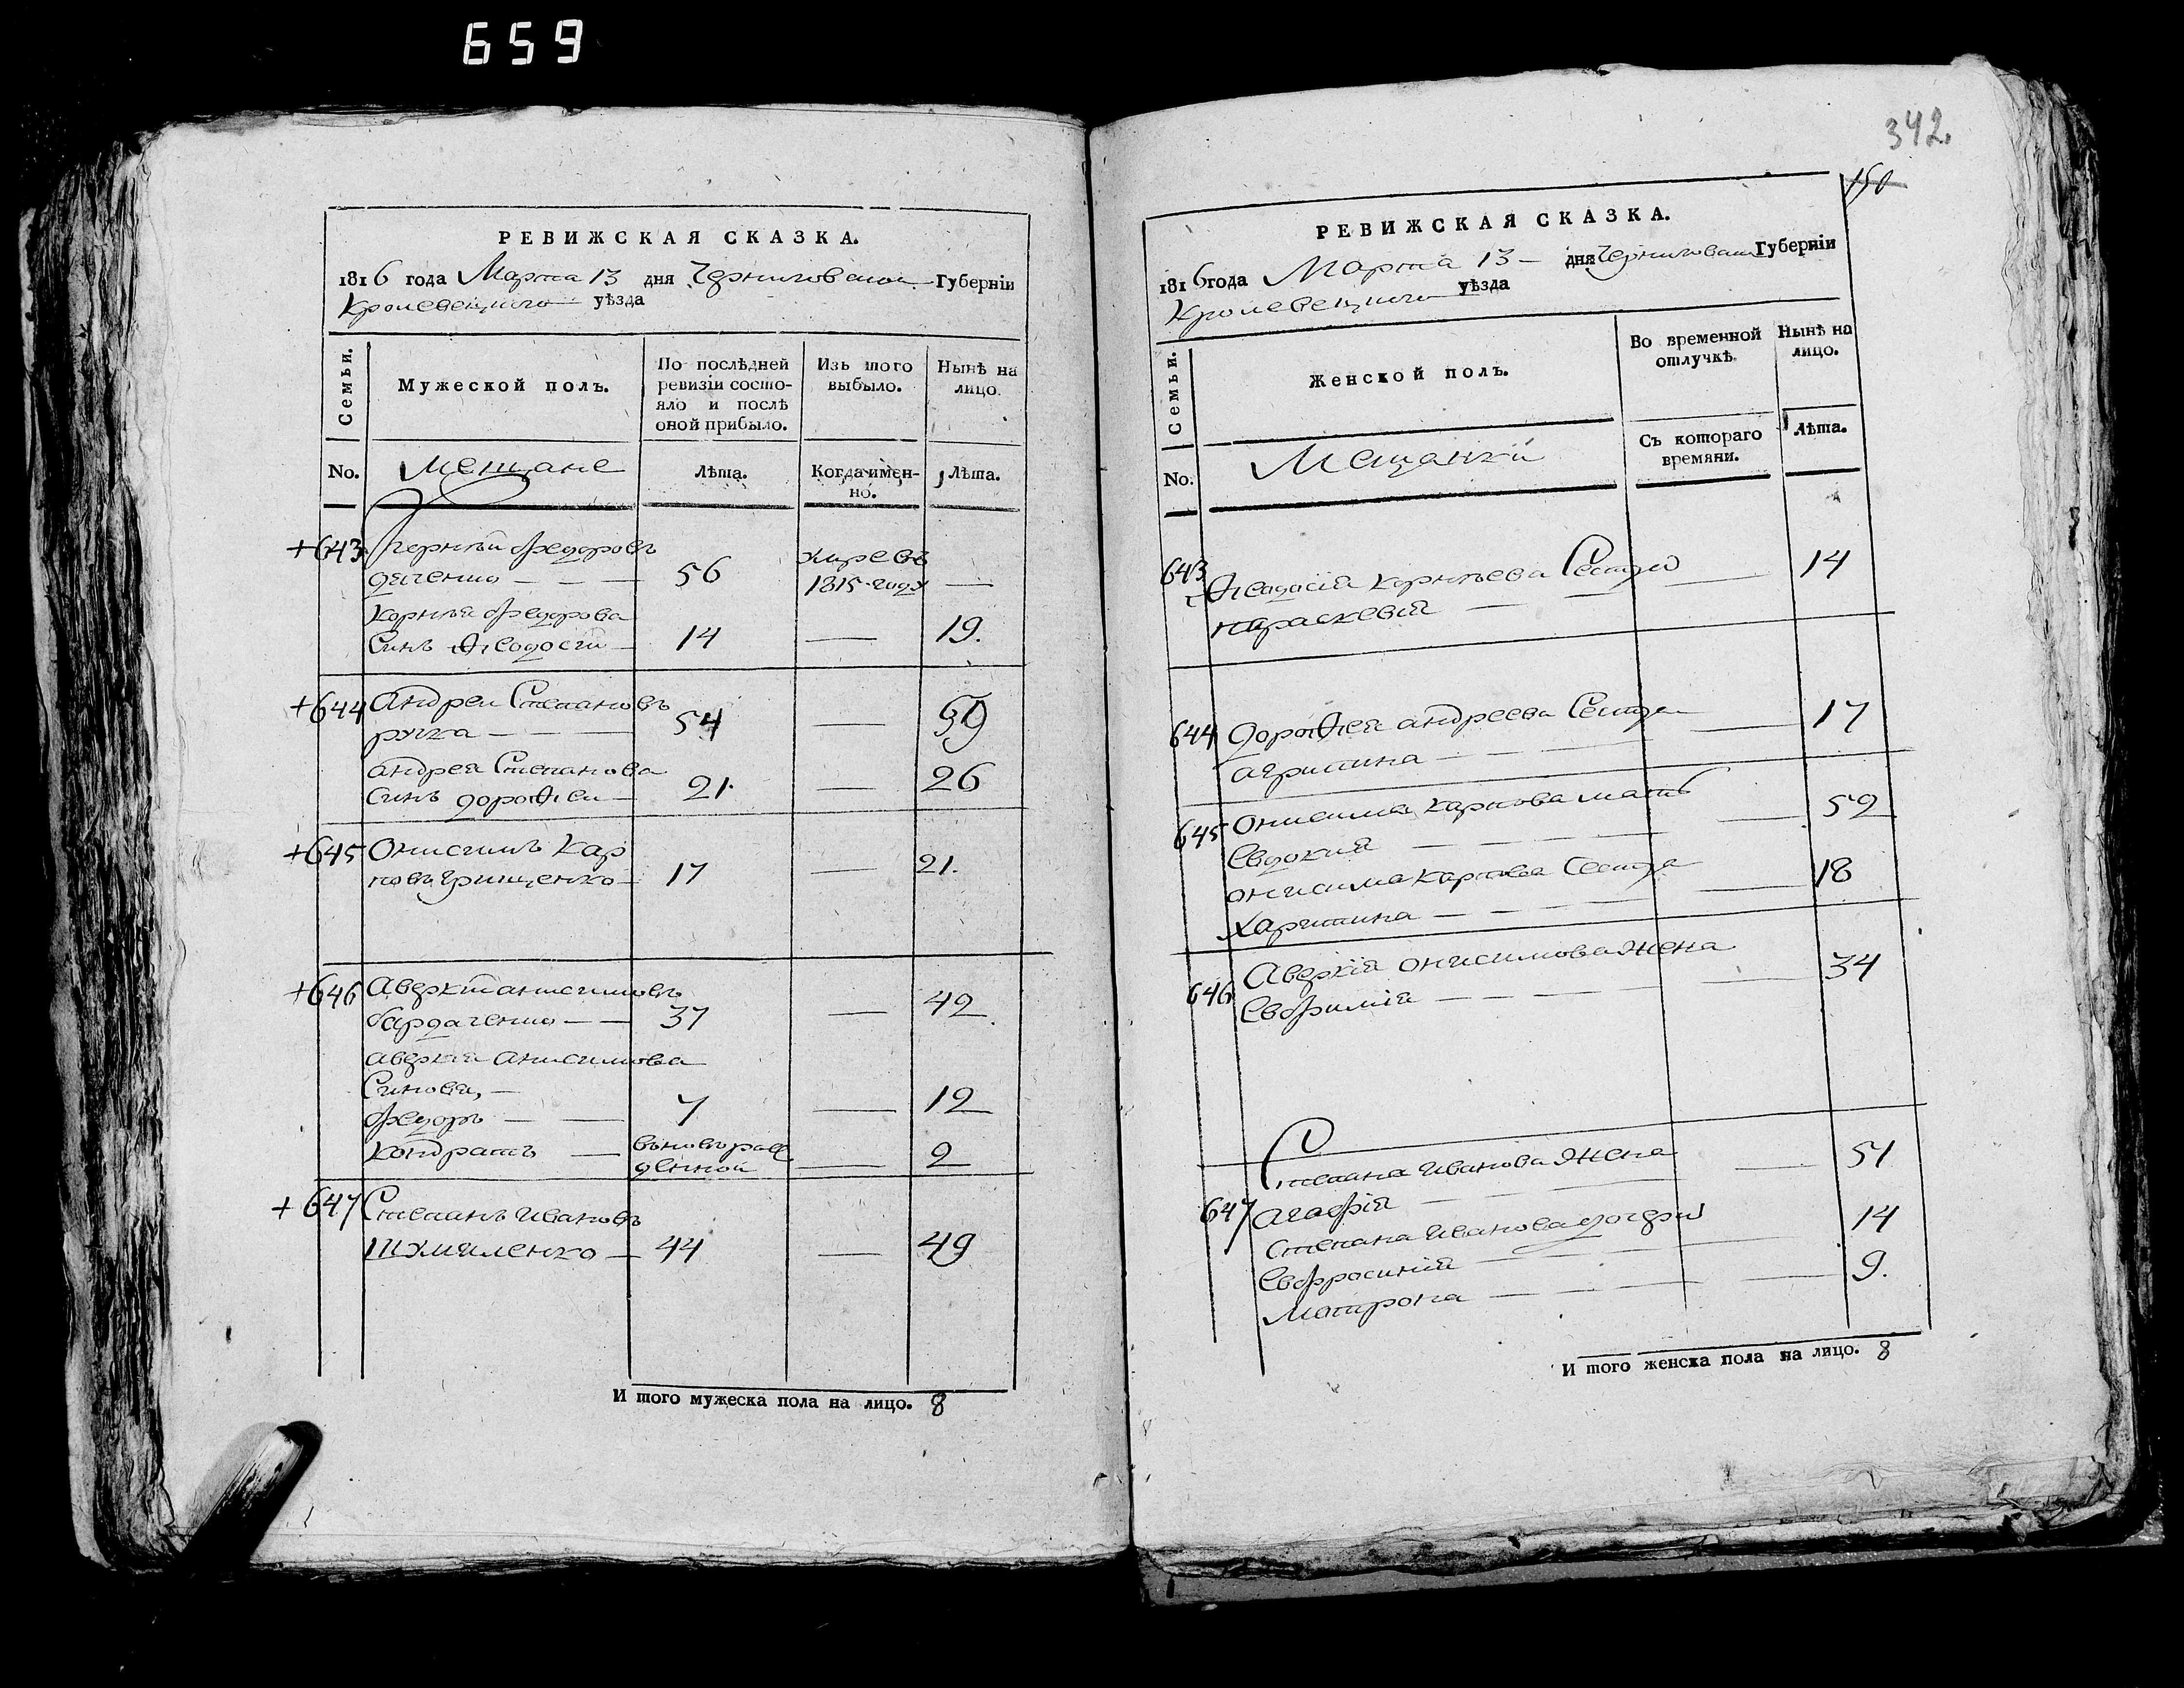 659
РЕВИЖСКАЯ СКАЗКА.
1816 года Марта 13 дня Черниговской Губерніи
Кролевецкого уѣзда
Семьи.
Мужеской полъ.
По послѣдней ревизіи состояло и послѣ оной прибыло.
Изъ того выбыло.
Нынѣ на лицо.
No.
мещане
Лѣта.
Когда имен-
но.
Лѣта.
+643 Корнѣй Федоровъ
дяченко — — — 56 умре въ
1815 году —
корнѣя Федорова
Синъ Ѳеодосій — 14 — 19.
+644 Андреи Степановъ
ручка — — — 54 — 59
андрея Степанова
синъ дороѳеи — 21. — 26
+645 Онисимъ Кар
повъ Грищенко — 17 — 21.
+646 Аверкій анисимовъ
бардаченко — — 37 — 42
аверкия анисимова
Синовя, —
Федоръ — — 7 — 12
кондратъ — вьновърож
денной — 2
+647 Степанъ Ивановъ
шумиленко — 44 — 49
И того мужеска пола на лицо. 8
342.
150
РЕВИЖСКАЯ СКАЗКА.
1816 года Марта 13 — дня Черниговской Губерніи
Кролевецкого уѣзда
Семьи.
Женской полъ.
Во временной
отлучкѣ.
Нынѣ на
лицо.
No.
Мещанки
Съ котораго
времяни.
Лѣта.
643 Ѳеодосія корнѣева Сестра — 14
параскевія — —
644 дороѳея андреева Сестра — 17
агрипина — —
645 Онисима карпова мать — 52
Евдокия — — —
онисима карпова Сестра — 18
харитина — — —
646 Аверкія онисимова жена — 34
Евфимія — — —
647 Степана Иванова жена — 51
Агафія — —
Степана Иванова дочери
Евфросинія — — 14
матрона — — — 9.
И того женска пола на лицо. 8